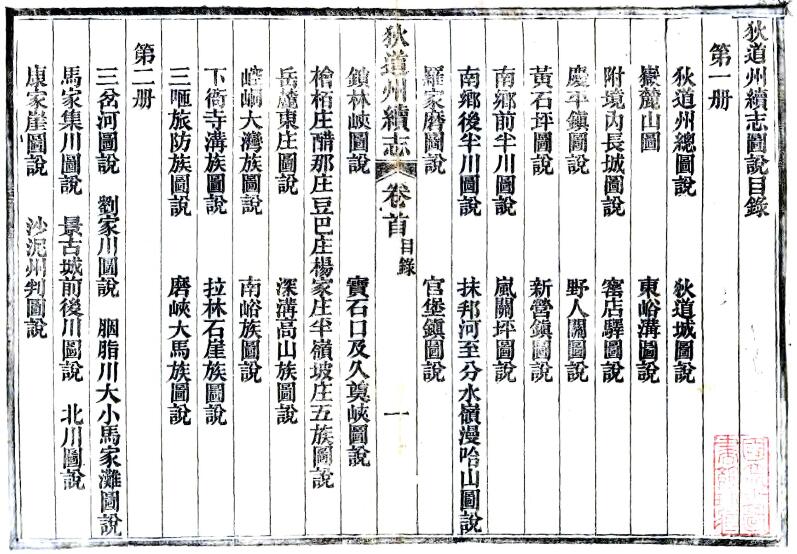 狄道州續志圖說目錄
第一册
狄道州總圖說 狄道城圖說
嶽麓山圖 東峪溝圖說
附境內長城圖說 窰店驛圖說
慶平鎮圖說 野人關圖說
黃石坪圖說 新營鎮圖說
南鄉前半川圖說 嵐關坪圖說
南鄉後半川圖說 抹邦河至分水嶺漫哈山圖說
羅家磨圖說 官堡鎮圖說
狄道州續志 卷首 目錄 一
鎖林峽圖說 寶石口及久奠峽圖說
檜柏庄醋那庄豆巴庄楊家庄半嶺坡庄五族圖說
岳麓東庄圖說 深溝高山族圖說
崆峒大灣族圖說 南峪族圖說
下衙寺溝族圖說 拉林石崖族圖說
三咂旅防族圖說 磨峽大馬族圖說
第二册
三岔河圖說 劉家川圖說 胭脂川大小馬家灘圖說
馬家集川圖說 景古城前後川圖說 北川圖說
康家崖圖說 沙泥州判圖說